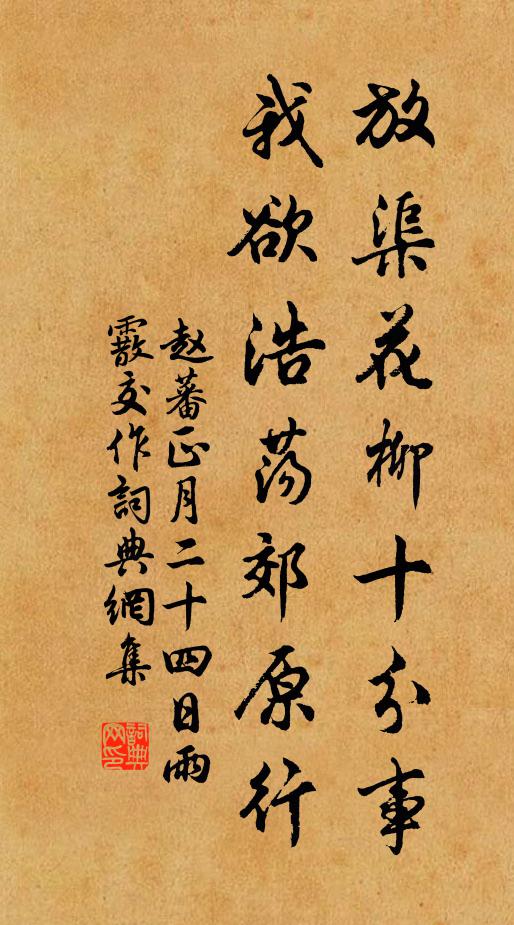 放渠花柳十分事
我欲浩荡郊原行
赵蕃正月二十四日雨
霰交作詞典網集
詞典
网印